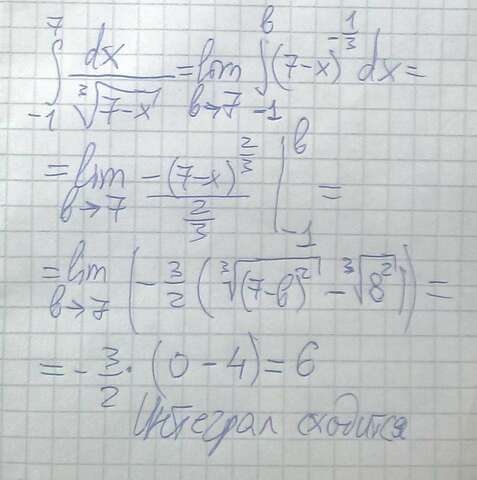 ∫_{-1}^{7} dx/∛(7-x) = lim_{b→7} ∫_{-1}^{b} (7-x)^{-1/3} dx =
= lim_{b→7} -(7-x)^{2/3}/(2/3) |_{-1}^{b} =
= lim_{b→7} (-3/2 (∛((7-b)²) - ∛(8²))) =
= -3/2 · (0-4) = 6
Интеграл сходится